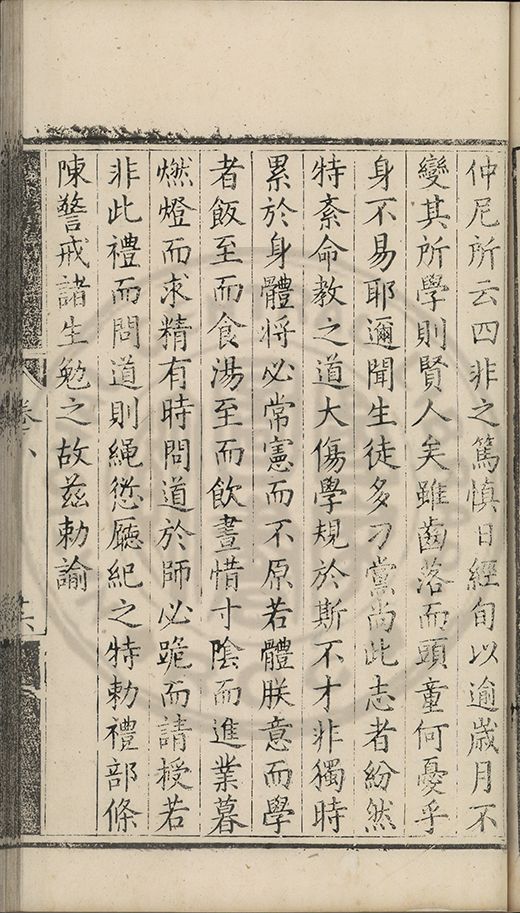 仲尼所云四非之篤慎日經旬以逾歲月不
變其所學則賢人矣雖齒落而頭童何憂乎
身不易耶邇聞生徒多刁黨尚此志者紛然
特紊命教之道大傷學規於斯不才非獨時
累於身體將必常憲而不原若體朕意而學
者飯至而食湯至而飲晝惜寸陰而進業暮
燃燈而求精有時問道於師必跪而請授若
非此禮而問道則繩愆廳紀之特勅禮部條
陳警戒諸生勉之故茲勅諭
卷六